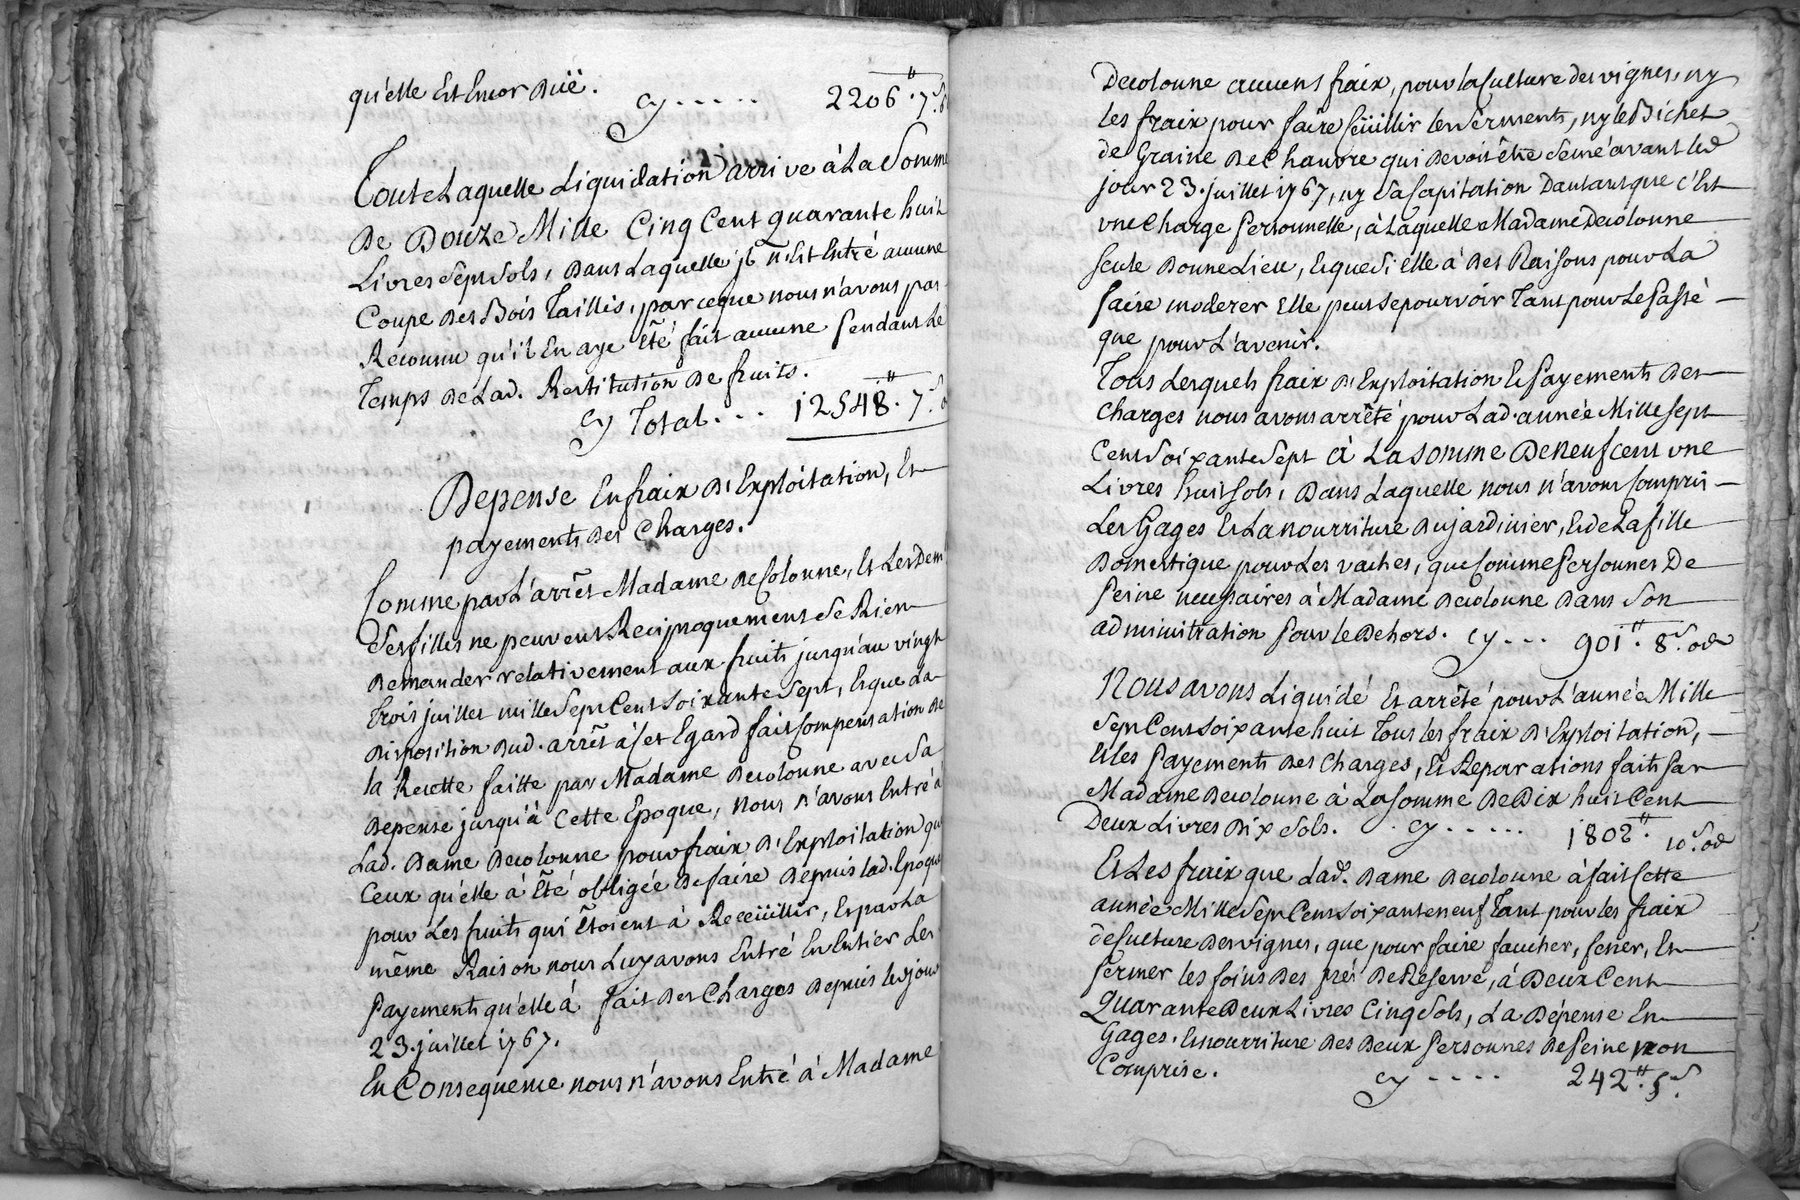 qu'elle Est Encor Duë.
Cy ..... 2206.tt 7.s 6
Toute Laquelle Liquidation arrive à La Somme
De Douze Mille Cinq Cent quarante huit
Livres sept sols, Dans Laquelle il n'Est Entré aucune
Coupe des Bois Taillis, par ce que nous n'avons pas
Reconnu qu'il En aye Eté fait aucune pendant Le
Temps de Lad. Restitution de fruits.
Cy Total ... 12548.tt 7.s 0
Depense En fraix D'Exploitation, Et
payements des Charges.
Comme par L'arrêt Madame de Colonne, Et Les Dem.
Ses filles ne peuvent Reciproquement Se Rien
Demander relativement aux fruits jusqu'au vingt
Trois juillet mille Sept Cent Soixante Sept, Et que La
Disposition dud. arrêt à Cet Egard fait Compensation de
la Recette faitte par Madame de Colonne avec Sa
Depense jusqu'à Cette Epoque, nous n'avons Entré à
Lad. Dame de Colonne pour fraix D'Exploitation que
Ceux qu'elle à Eté obligée de faire Depuis lad. Epoque
pour Les fruits qui Etoient à Receüillir, Et par La
même Raison nous Luy avons Entré En Entier Les
Payements qu'elle à fait des Charges Depuis led. jour
23. juillet 1767.
En Consequence nous n'avons Entré à Madame
De Colonne aucuns fraix, pour la Culture des vignes, ny
les fraix pour faire Ceüillir les serments, ny le Bichet
de Graine de Chanvre qui devoit être semé avant led
jour 23. juillet 1767, ny sa Capitation D'autant que c'Est
une Charge Personnelle, à Laquelle Madame De Colonne
Seule Donne Lieu, Et que Si elle à des Raisons pour La
faire moderer Elle peut se pourvoir Tant pour Le Passé
que pour L'avenir.
Tous Lesquels fraix D'Exploitation Et Payements des
Charges nous avons arrêté pour Lad. année Mille sept
Cent Soixante Sept à La somme De neuf cent une
Livres huit sols, Dans Laquelle nous n'avons Compris
Les Gages Et La nourriture du jardinier, Et de La fille
Domestique pour Les vaches, que Comme Personnes De
Peine necessaires à Madame De Colonne Dans Son
administration Pour le Dehors. Cy ... 901.tt 8.s 0 d
Nous avons Liquidé Et arrêté pour L'année Mille
Sept Cent Soixante huit Tous les fraix D'Exploitation,
Et les Payements des Charges, Et Reparations faits Par
Madame De Colonne à La somme De Dix huit Cent
Deux Livres Dix Sols. Cy ...... 1802.tt 10.s 0 d
Et Les fraix que Lad. Dame De Colonne à fait Cette
année Mille Sept Cent Soixante neuf Tant pour les fraix
de Culture des vignes, que pour faire faucher, fener, Et
fermer les foins des prés De Reserve, à Deux Cent
Quarante Deux Livres Cinq Sols, La Dépense En
Gages, Et nourriture des Deux Personnes de Peine non
Comprise. Cy .... 242.tt 5.s